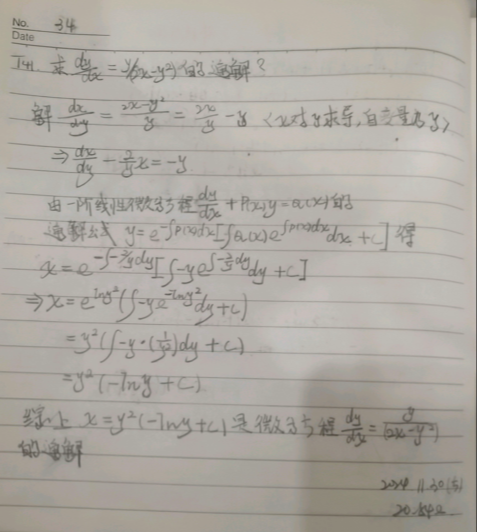 No. 34
Date
T41. 求 dy/dx = y/(2x-y²) 的通解?
解 dx/dy = (2x-y²)/y = 2x/y - y (x对y求导,自变量为y)
⇒ dx/dy - 2/y x = -y
由一阶线性微分方程 dy/dx + P(x)y = Q(x) 的
通解公式 y = e^{-∫P(x)dx}[∫Q(x)e^{∫P(x)dx}dx + C] 得
x = e^{-∫-2/y dy}[∫-y e^{∫-2/y dy}dy + C]
⇒ x = e^{lny²}(∫-y e^{-lny²}dy + C)
= y²(∫-y·(1/y²)dy + C)
= y²(-lny + C)
综上 x = y²(-lny + C) 是微分方程 dy/dx = y/(2x-y²)
的通解
2024.11.30(六)